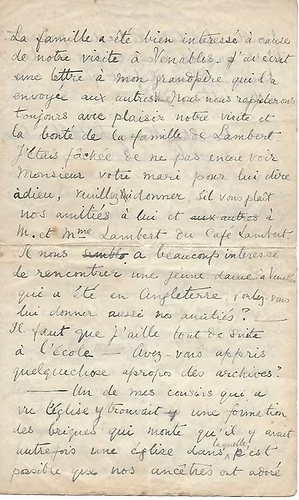 La famille a été bien interessé à cause
de notre visite à Venables. J'ai écrit
une lettre à mon grandpère qui l'a
envoyée aux autres. Nous nous rappellerons
toujours avec plaisir notre visite et
la bonté de la famille de Lambert
J'étais fâchée de ne pas encore voir
Monsieur votre mari pour lui dire
adieu, veuillez donner, s'il vous plaît
nos amitiés à lui et aux autres à
M. et Mme Lambert du Café Lambert
Il nous semble a beaucoup interessé
de rencontrer une jeune dame à Venables
qui a été en Angleterre. Voulez-vous
lui donner aussi nos amitiés? —
Il faut que j'aille tout de suite
à l'école — Avez-vous appris
quelquechose apropos des archives?
— Un de mes cousins qui a
vu l'église y trouvait y une formation
des briques qui montre qu'il y avait
autrefois une église dans laquelle c'est
possible que nos ancêtres ont adoré